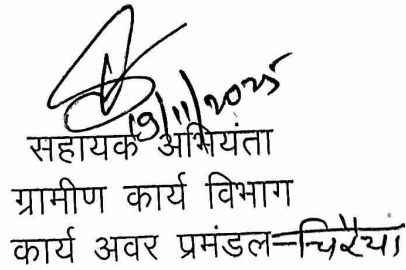 19/11/2025
सहायक अभियंता
ग्रामीण कार्य विभाग
कार्य अवर प्रमंडल-चिरैया